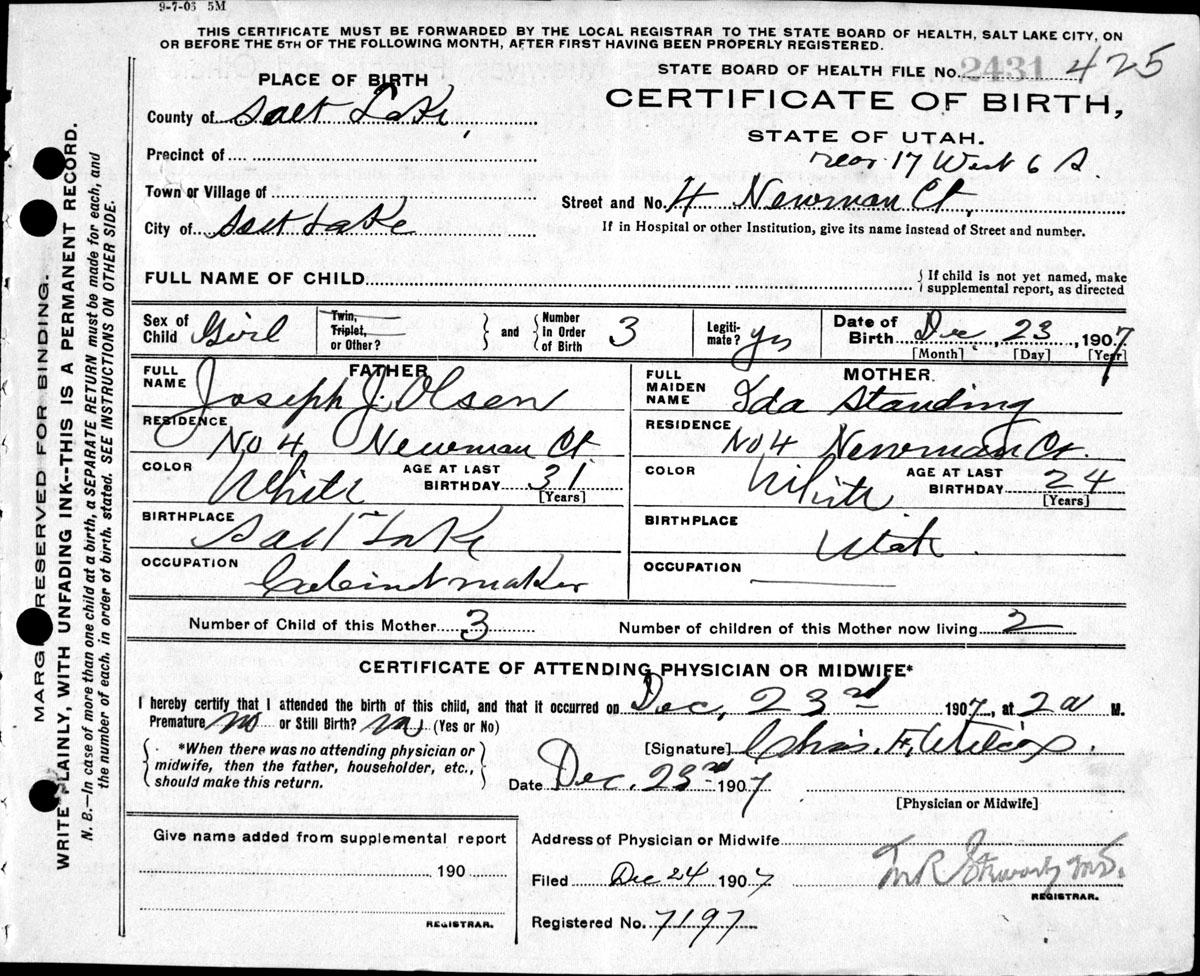 9-7-06 5M
THIS CERTIFICATE MUST BE FORWARDED BY THE LOCAL REGISTRAR TO THE STATE BOARD OF HEALTH, SALT LAKE CITY, ON
OR BEFORE THE 5TH OF THE FOLLOWING MONTH, AFTER FIRST HAVING BEEN PROPERLY REGISTERED.
STATE BOARD OF HEALTH FILE No. 2431 425
CERTIFICATE OF BIRTH,
STATE OF UTAH.
PLACE OF BIRTH
County of Salt Lake,
Precinct of
Town or Village of
City of Salt Lake
rear 17 West 6 S.
Street and No. 4 Newman Ct.
If in Hospital or other Institution, give its name instead of Street and number.
FULL NAME OF CHILD
{ If child is not yet named, make
supplemental report, as directed
Sex of Child Girl
Twin,
Triplet,
or Other?
} and { Number in Order of Birth 3
Legitimate? yes
Date of Birth Dec, 23, 1907
[Month] [Day] [Year]
FATHER
FULL NAME Joseph J. Olsen
RESIDENCE No 4 Newman Ct.
COLOR White AGE AT LAST BIRTHDAY 31
[Years]
BIRTHPLACE Salt Lake
OCCUPATION Cabinet maker
MOTHER.
FULL MAIDEN NAME Ida Standing
RESIDENCE No 4 Newman Ct.
COLOR White AGE AT LAST BIRTHDAY 24
[Years]
BIRTHPLACE Utah.
OCCUPATION
Number of Child of this Mother 3 Number of children of this Mother now living 2
CERTIFICATE OF ATTENDING PHYSICIAN OR MIDWIFE*
I hereby certify that I attended the birth of this child, and that it occurred on Dec, 23rd 1907, at 2 a M.
Premature no or Still Birth? no (Yes or No)
{ *When there was no attending physician or
midwife, then the father, householder, etc.,
should make this return. }
[Signature] Chas. F. Wilcox.
Date Dec. 23rd 1907
[Physician or Midwife]
Give name added from supplemental report
190
REGISTRAR.
Address of Physician or Midwife
Filed Dec 24 1907
M.D.
REGISTRAR.
Registered No. 7197
MARGIN RESERVED FOR BINDING.
WRITE PLAINLY, WITH UNFADING INK--THIS IS A PERMANENT RECORD.
N. B.—In case of more than one child at a birth, a SEPARATE RETURN must be made for each, and
the number of each. in order of birth. stated. SEE INSTRUCTIONS ON OTHER SIDE.